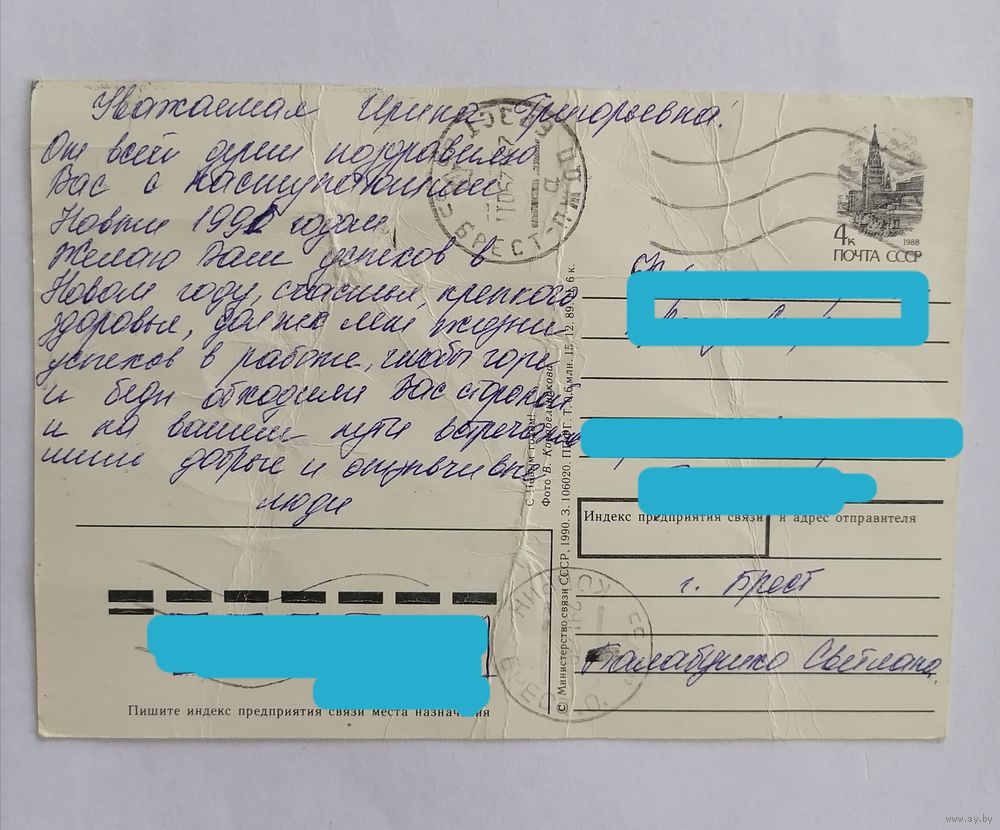 Уважаемая Ирина Григорьевна!
От всей души поздравляю
Вас с наступающим
Новым 1991 годом
Желаю Вам успехов в
Новом году, счастья, крепкого
здоровья, долгих лет жизни
успехов в работе, чтобы горе
и беды обходили Вас стороной
и на вашем пути встречались
лишь добрые и отзывчивые
люди
БРЕСТ
4к
1988
ПОЧТА СССР
С Новым годом!
Фото В. Корабельникова
© Министерство связи СССР, 1990. З. 106020. ППФГ. Т. 0,6 млн. 15.12.89. Ц. 6 к.
Индекс предприятия связи и адрес отправителя
г. Брест
Балабушко Светлана
Пишите индекс предприятия связи места назначения
www.ay.by